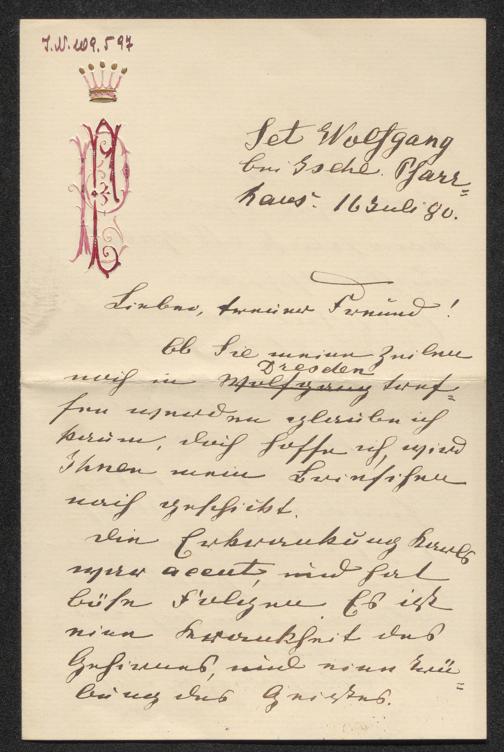 I.N. 109.597
Sct Wolfgang
bei Ischl. Pfarr=
haus. 16 Juli 80.
Lieber, treuer Freund!
Ob Sie meine Zeilen
Dresden
noch in Wolfgang tref=
fen werden glaube ich
kaum, doch hoffe ich, wird
Ihnen mein Briefchen
nach geschickt.
Die Erkrankung Karls
war acent, und hat
böse Folgen. Es ist
eine Krankheit des
Gehirnes, und eine Trü=
bung des Geistes.